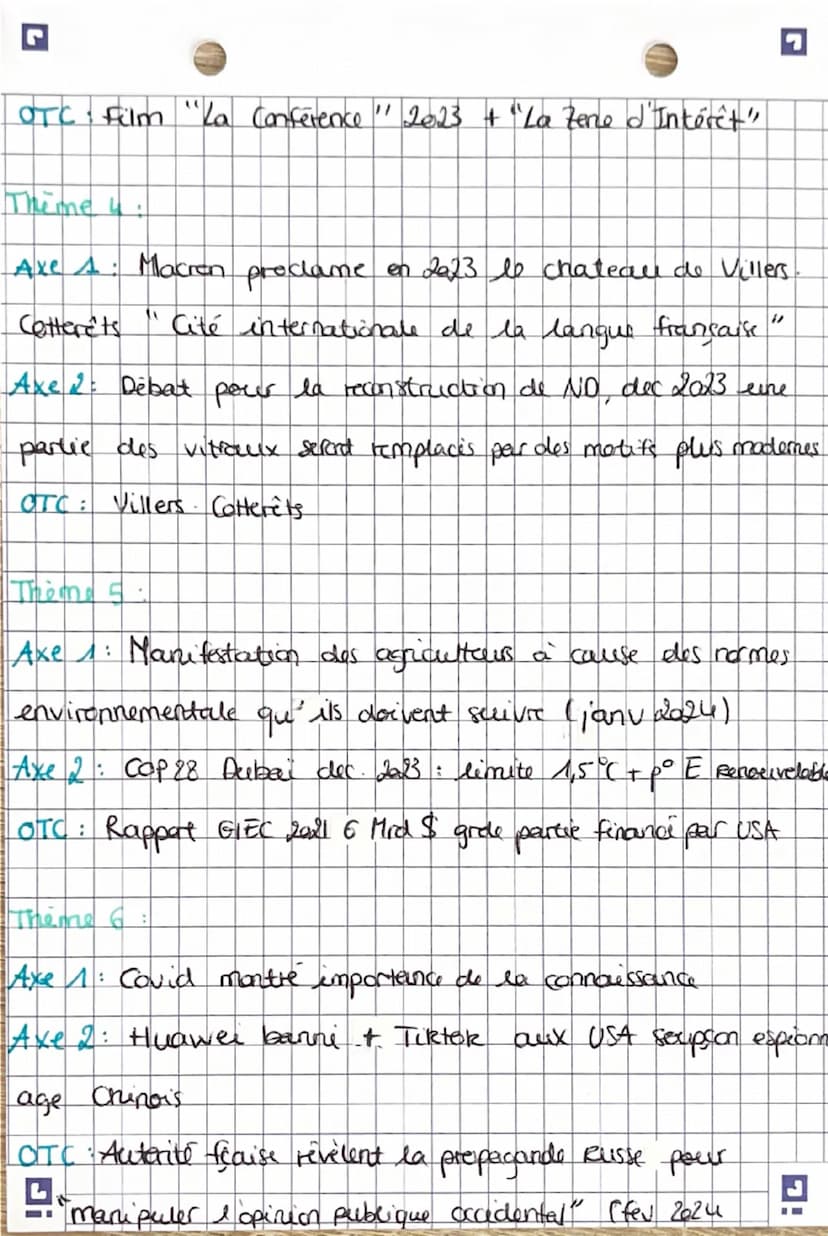 OTC : Film "La Conférence" 2023 + "La Zone d'Intérêt"
Thème 4 :
Axe 1 : Macron proclame en 2023 le chateau de Villers-
Cotterêts "Cité internationale de la langue française"
Axe 2 : Débat pour la reconstruction de ND, dec 2023 une
partie des vitraux seront remplacés par des motifs plus modernes
OTC : Villers-Cotterêts
Thème 5 :
Axe 1 : Manifestation des agriculteurs à cause des normes
environnementale qu'ils doivent suivre (janv 2024)
Axe 2 : COP 28 Dubaï dec. 2023 : limite 1,5°C + p° E Renouvelable
OTC : Rapport GIEC 2021 6 Mrd $ grde partie financé par USA
Thème 6 :
Axe 1 : Covid montré importance de la connaissance
Axe 2 : Huawei banni + Tiktok aux USA soupçon espionn
age Chinois
OTC : Autorité fçaise révèlent la propagande Russe pour
"manipuler l'opinion publique occidental" (fev 2024